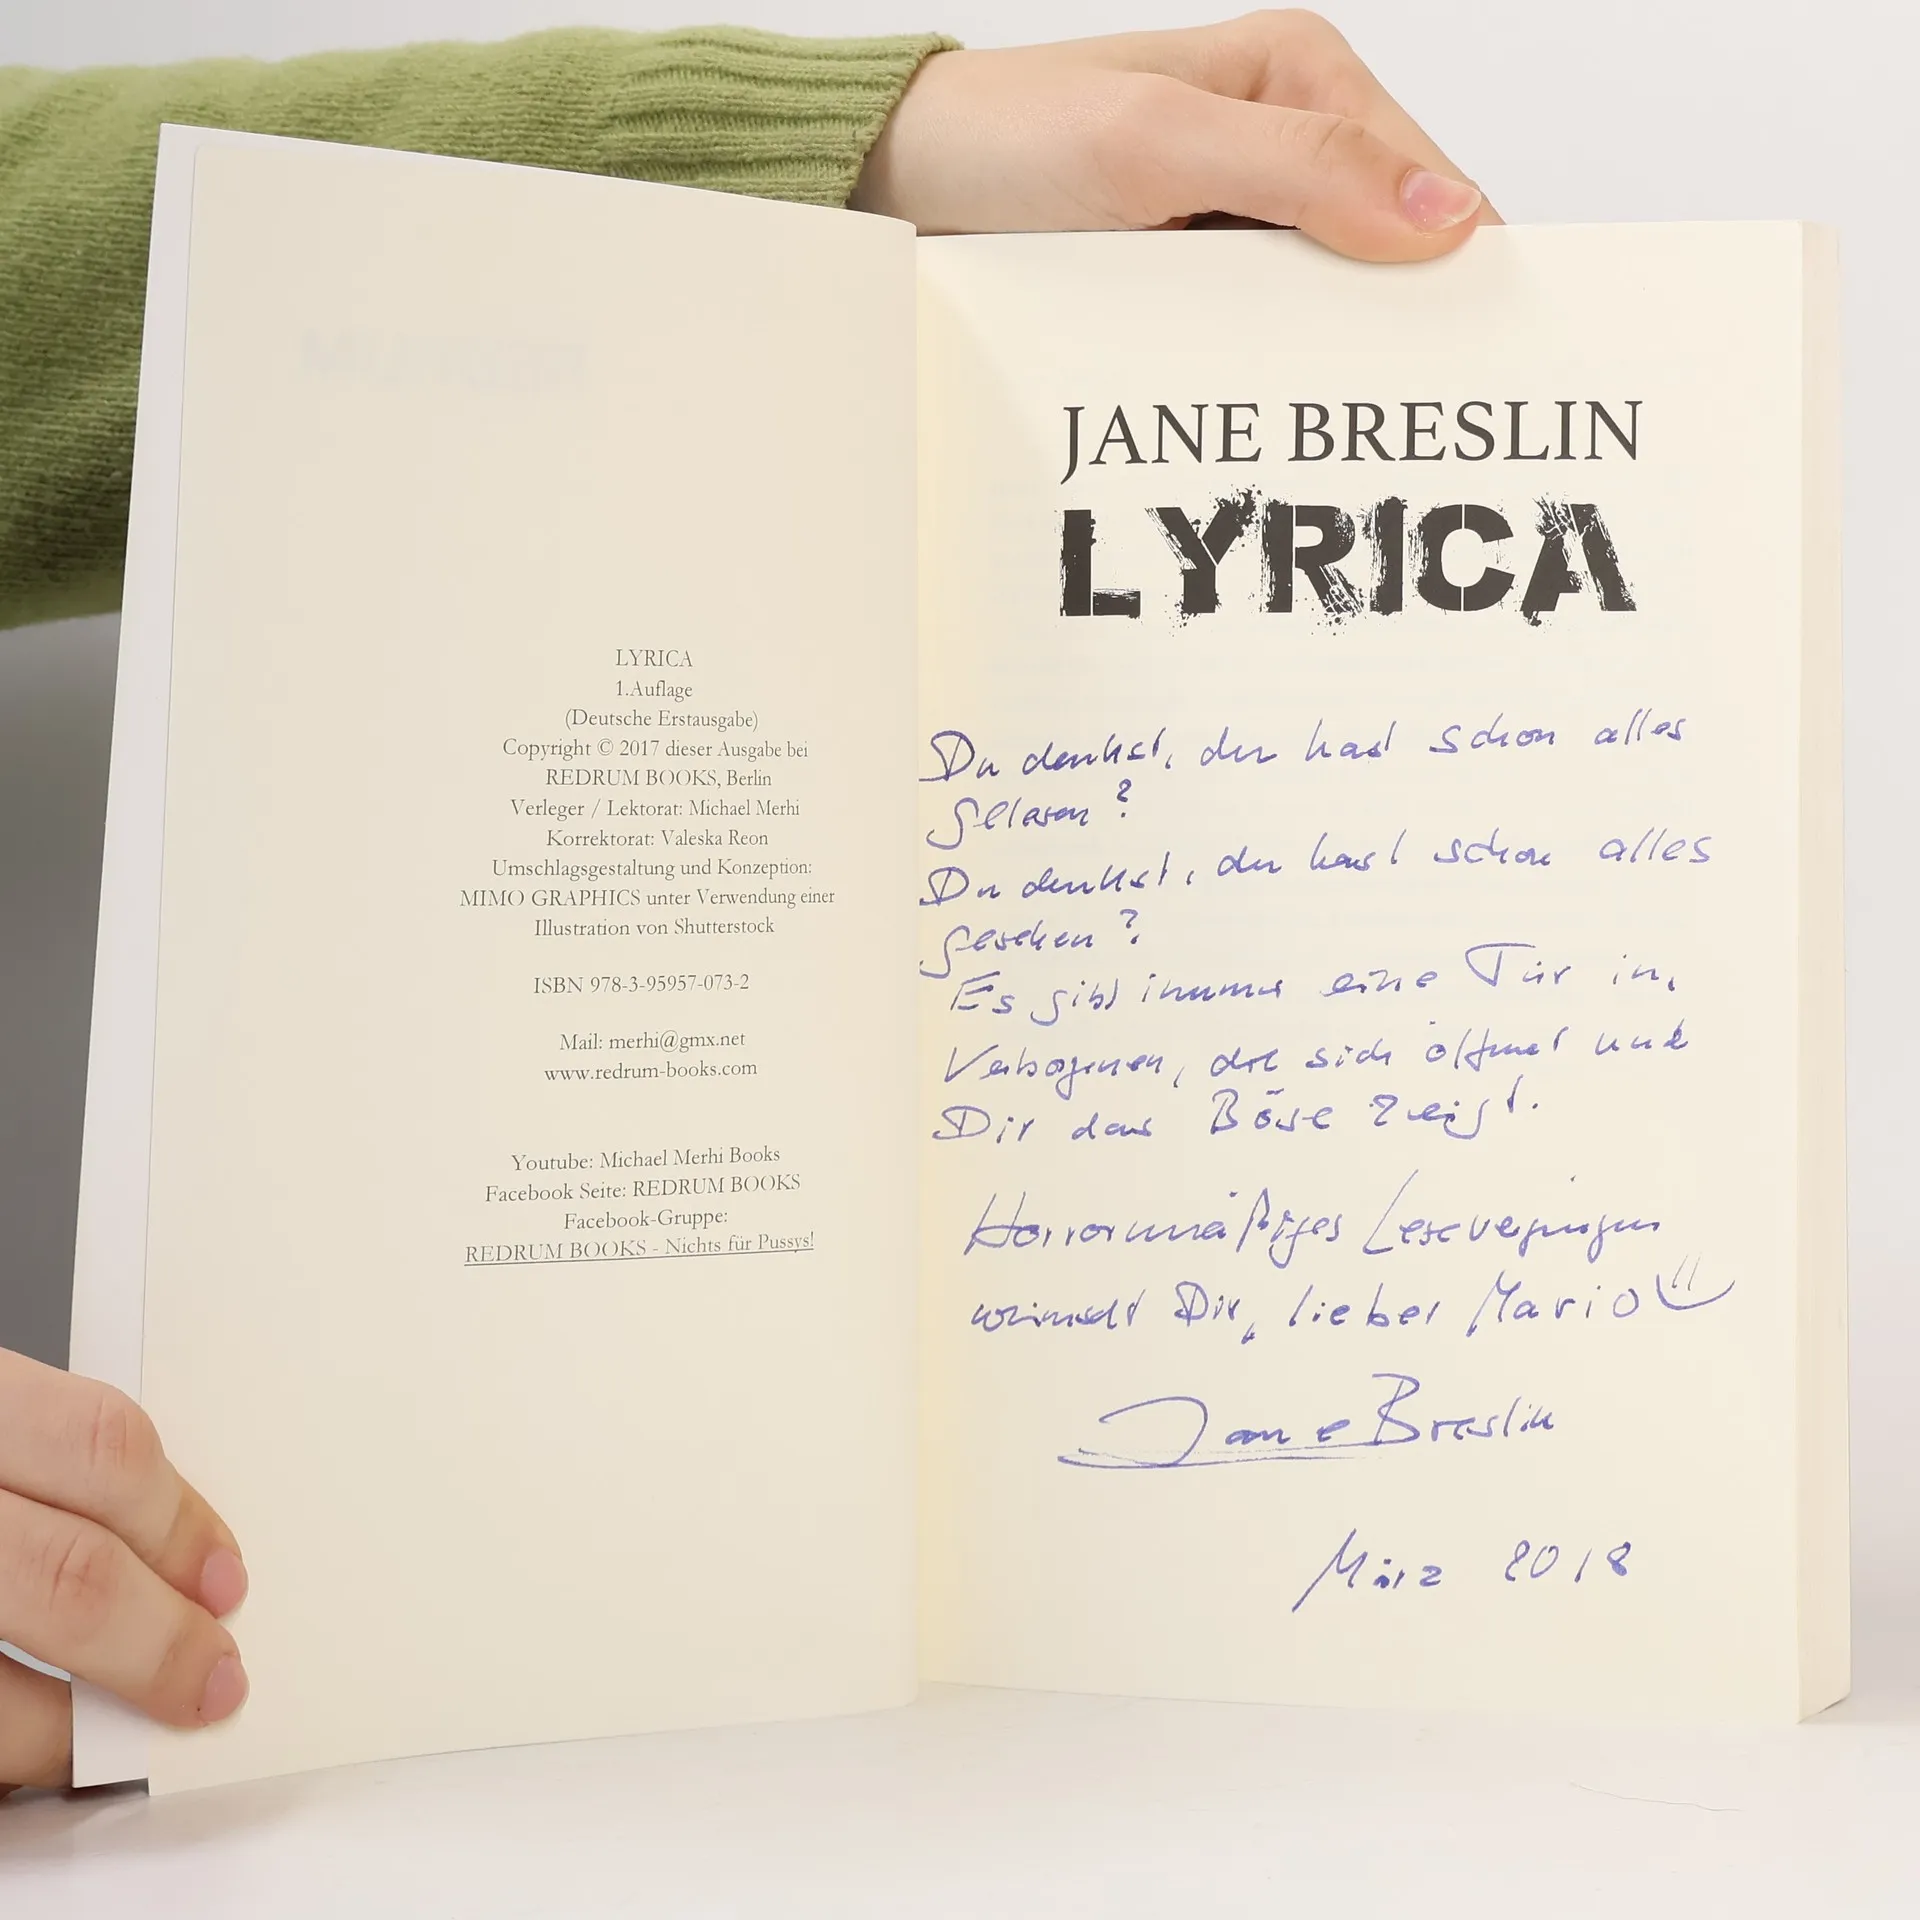 LYRICA
1.Auflage
(Deutsche Erstausgabe)
Copyright © 2017 dieser Ausgabe bei
REDRUM BOOKS, Berlin
Verleger / Lektorat: Michael Merhi
Korrektorat: Valeska Reon
Umschlagsgestaltung und Konzeption:
MIMO GRAPHICS unter Verwendung einer
Illustration von Shutterstock
ISBN 978-3-95957-073-2
Mail: merhi@gmx.net
www.redrum-books.com
Youtube: Michael Merhi Books
Facebook Seite: REDRUM BOOKS
Facebook-Gruppe:
REDRUM BOOKS - Nichts für Pussys!
JANE BRESLIN
LYRICA
Du denkst, du hast schon alles
gelesen?
Du denkst, du hast schon alles
gesehen?
Es gibt immer eine Tür im
Verborgenen, die sich öffnet und
Dir das Böse zeigt.
Horrormäßiges Lesevergnügen
wünscht Dir, lieber Mario
Jane Breslin
März 2018